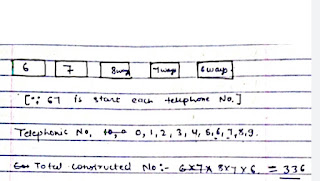 6 7 8 way 7 way 6 way
[∵ 67 is start each telephone No.]
Telephonic No. 0, 1, 2, 3, 4, 5, 6, 7, 8, 9.
Total constructed No:- 6x7x 8x7x6. = 336